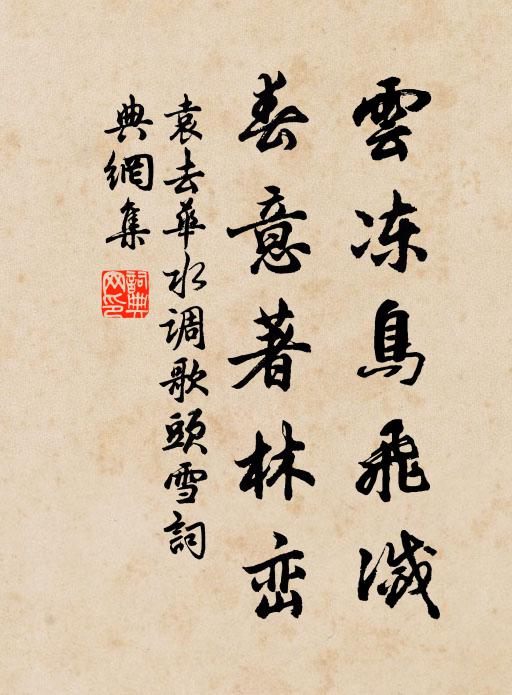 雲冻鳥飛滅
春意著林峦
袁去华水调歌頭雪詞
典網集
詞典网印